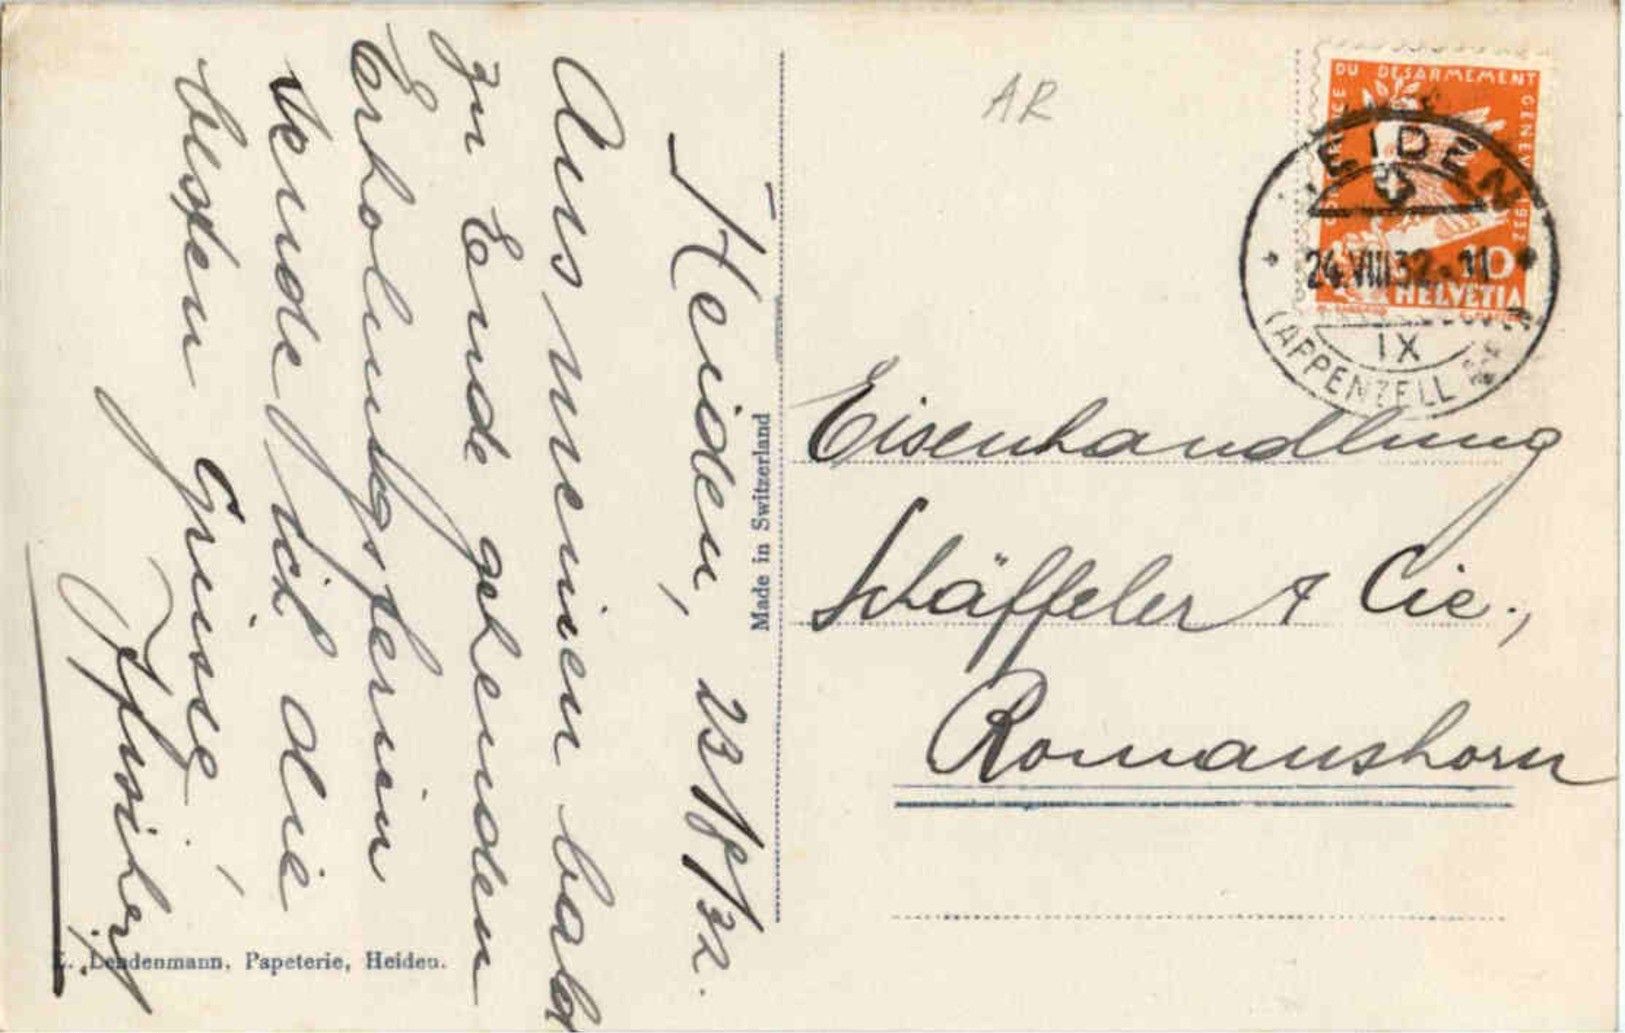 Heiden, 23/8/32.
Aus meinen bald
zu Ende gehenden
Erholungsferien
sende ich die
besten Grüsse,
E. Lendenmann, Papeterie, Heiden.
Made in Switzerland
AR
DU DESARMEMENT GENEVE 1932
10
HELVETIA
HEIDEN
24.VIII 32.-11
IX
(APPENZELL
Eisenhandlung
Schäffeler & Cie.,
Romanshorn